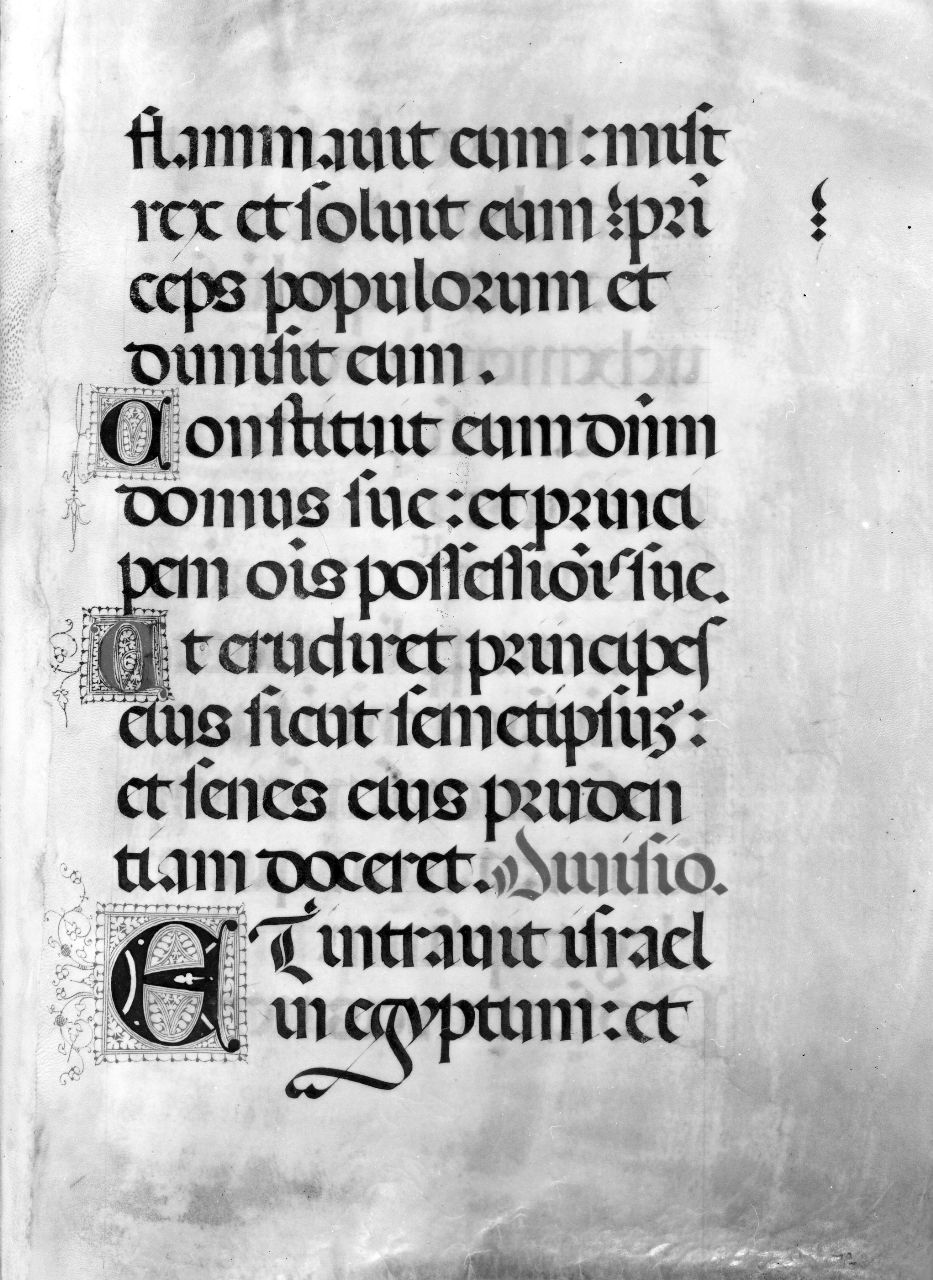 flammauit eum : misit
rex et soluit eum : pri
ceps populorum et
dimisit eum .
Constituit eum dñm
domus sue : et princi
pem ois possessiōis sue.
Et erudiret principes
eius sicut semetipsuʒ :
et senes eius pruden
tiam doceret. Diuisio.
ET intrauit israel
in egyptum : et